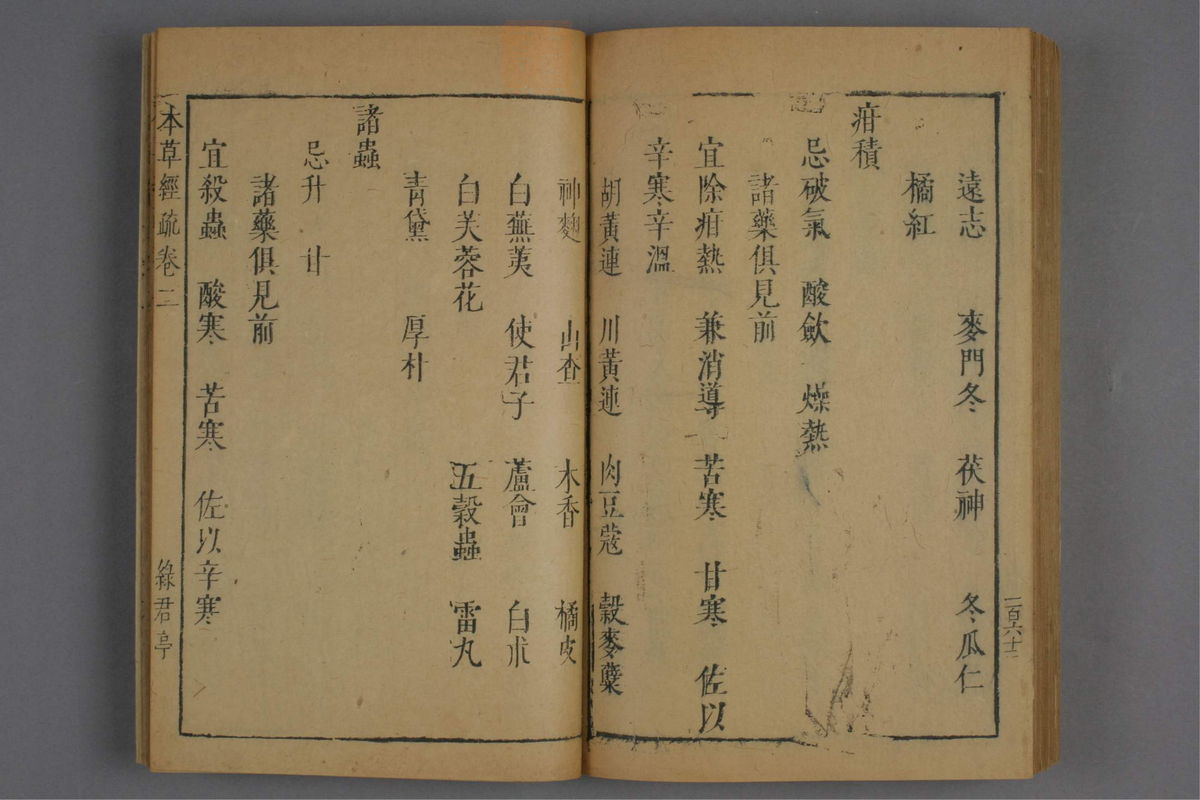 遠志 麥門冬 茯神 冬瓜仁
橘紅
疳積
忌破氣 酸斂 燥熱
諸藥俱見前
宜除疳熱 兼消導 苦寒 甘寒 佐以
辛寒辛溫
胡黃連 川黃連 肉豆蔻 穀麥蘗
神麴 山查 木香 橘皮
白蕪荑 使君子 蘆會 白朮
白芙蓉花 五穀蟲 雷丸
青黛 厚朴
諸蟲
忌升 甘
諸藥俱見前
宜殺蟲 酸寒 苦寒 佐以辛寒
本草經疏卷二 綠君亭